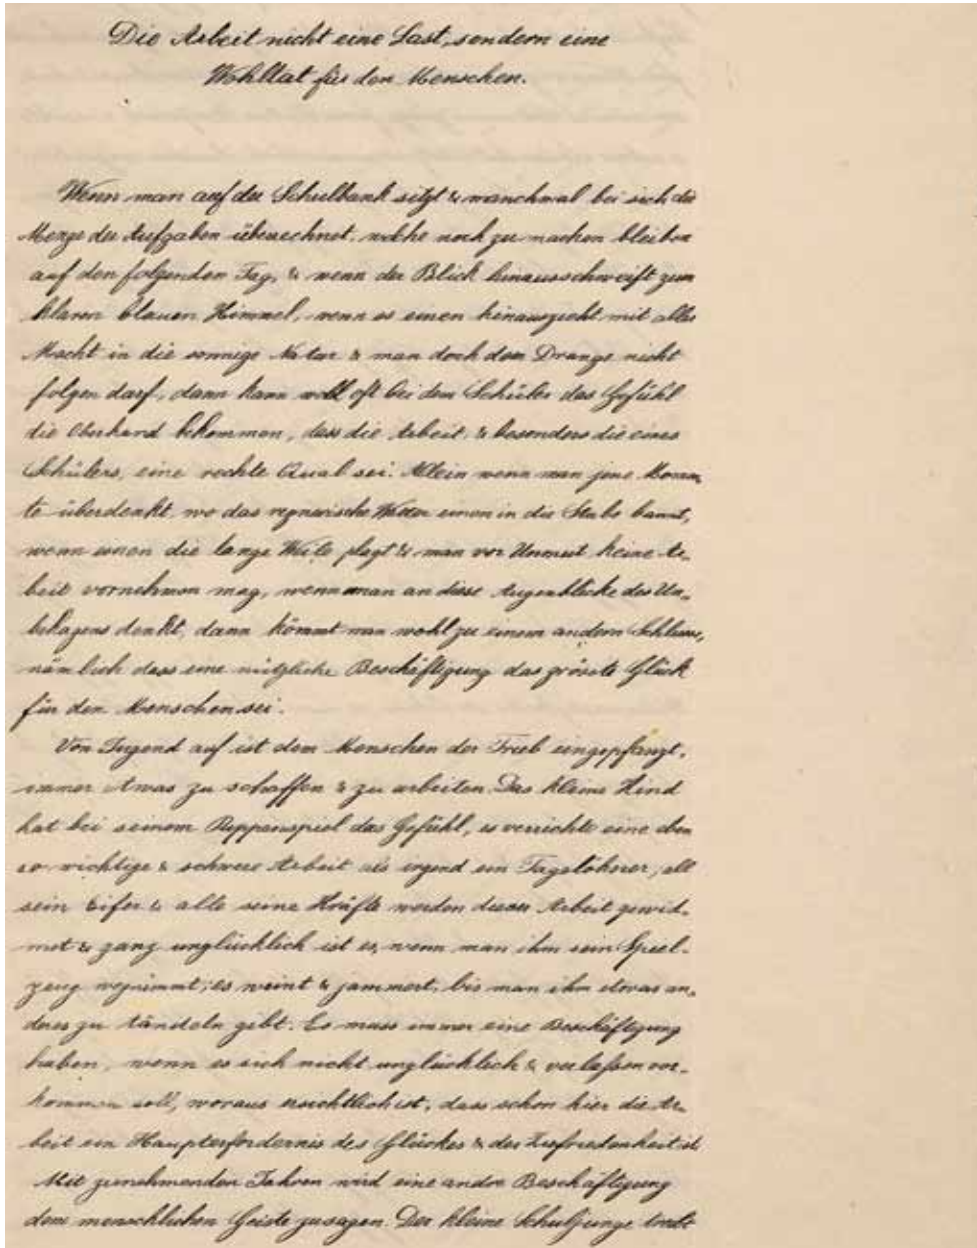 Die Arbeit nicht eine Last, sondern eine
Wohltat für den Menschen.
Wenn man auf der Schulbank sitzt & manchmal bei sich die
Menge der Aufgaben überrechnet, welche noch zu machen bleiben
auf den folgenden Tag, & wenn der Blick hinausschweift zum
klaren blauen Himmel, wenn es einen hinauszieht mit aller
Macht in die sonnige Natur & man doch dem Drange nicht
folgen darf, dann kann wohl oft bei dem Schüler das Gefühl
die Oberhand bekommen, dass die Arbeit, & besonders die eines
Schülers, eine rechte Qual sei. Allein wenn man jene Momen
te überdenkt, wo das regnerische Wetter einen in die Stube bannt,
wenn einen die lange Weile plagt & man vor Unmut keine Ar-
beit vornehmen mag, wenn man an diese Augenblicke des Un-
behagens denkt, dann kömmt man wohl zu einem andern Schlusse,
nämlich dass eine nützliche Beschäftigung das grösste Glück
für den Menschen sei.
Von Jugend auf ist dem Menschen der Trieb eingepflanzt,
immer etwas zu schaffen & zu arbeiten. Das kleine Kind
hat bei seinem Puppenspiel das Gefühl, es verrichte eine eben
so wichtige & schwere Arbeit als irgend ein Taglöhner, all
sein Eifer & alle seine Kräfte werden dieser Arbeit gewid-
met & ganz unglücklich ist es, wenn man ihm sein Spiel-
zeug wegnimmt; es weint & jammert, bis man ihm etwas an-
deres zu tändeln gibt. Es muss immer eine Beschäftigung
haben, wenn es sich nicht unglücklich & verlassen vor-
kommen soll, woraus ersichtlich ist, dass schon hier die Ar-
beit ein Haupterfordernis des Glückes & der Zufriedenheit ist.
Mit zunehmenden Jahren wird eine andre Beschäftigung
dem menschlichen Geiste zusagen. Der kleine Schuljunge